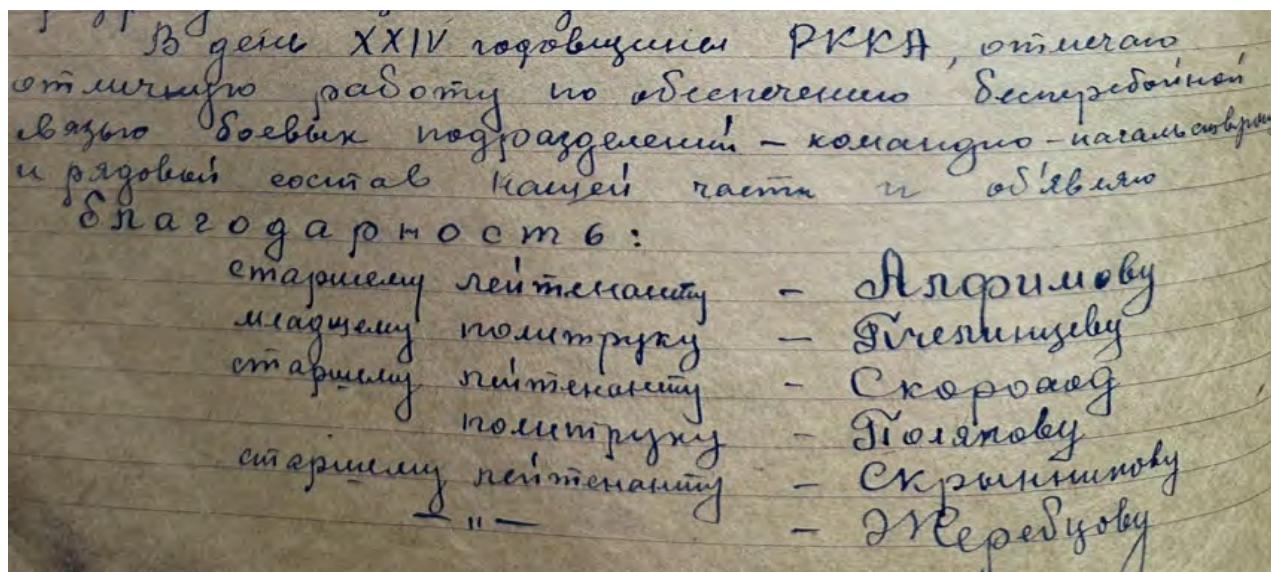 В день XXIV годовщины РККА, отмечаю
отличную работу по обеспечению бесперебойной
связью боевых подразделений – командно-начальствующ
и рядовой состав нашей части и об'являю
благодарность:
старшему лейтенанту – Алфимову
младшему политруку – Пчелинцеву
старшему лейтенанту – Скороход
политруку – Полякову
старшему лейтенанту – Скрынникову
– " – – Жеребцову